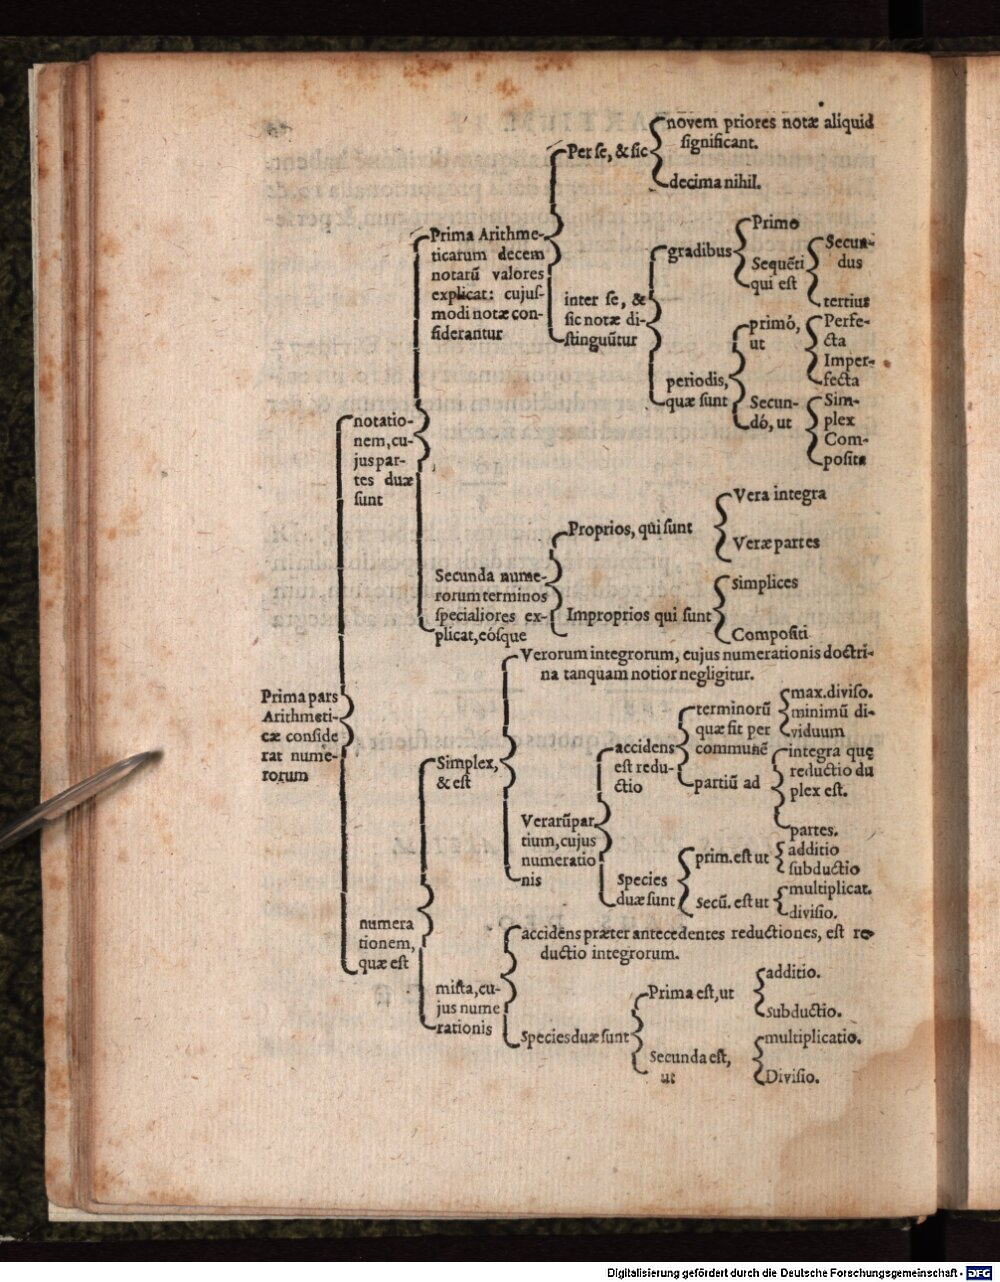 Prima pars
Arithmeti-
cæ conside
rat nume-
rorum
notatio-
nem, cu-
jus par-
tes duæ
sunt
Prima Arithme-
ticarum decem
notarū valores
explicat: cujus-
modi notæ con-
siderantur
Per se, & sic
novem priores notæ aliquid
significant.
decima nihil.
inter se, &
sic notæ di-
stinguūtur
gradibus
Primo
Sequēti
qui est
Secun-
dus
tertius
periodis,
quæ sunt
primò,
ut
Perfe-
cta
Imper-
fecta
Secun-
dó, ut
Sim-
plex
Com-
posita
Secunda nume-
rorum terminos
specialiores ex-
plicat, eósque
Proprios, qui sunt
Vera integra
Veræ partes
Improprios qui sunt
simplices
Compositi
numera
tionem,
quæ est
Simplex,
& est
Verorum integrorum, cujus numerationis doctri-
na tanquam notior negligitur.
Verarū par
tium, cujus
numeratio
nis
accidens
est redu-
ctio
terminorū
quæ fit per
communē
max. diviso.
minimū di-
viduum
partiū ad
integra quę
reductio du
plex est.
partes.
Species
duæ sunt
prim. est ut
additio
subductio
secū. est ut
multiplicat.
divisio.
mista, cu-
jus nume
rationis
accidens præter antecedentes reductiones, est re-
ductio integrorum.
Species duæ sunt
Prima est, ut
additio.
subductio.
Secunda est,
ut
multiplicatio.
Divisio.
Digitalisierung gefördert durch die Deutsche Forschungsgemeinschaft - DFG